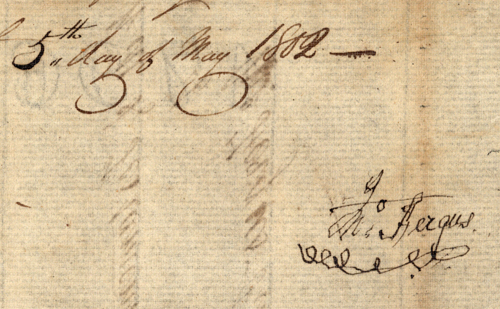 5th day of May 1802 —
Jo
Mc Fergus.